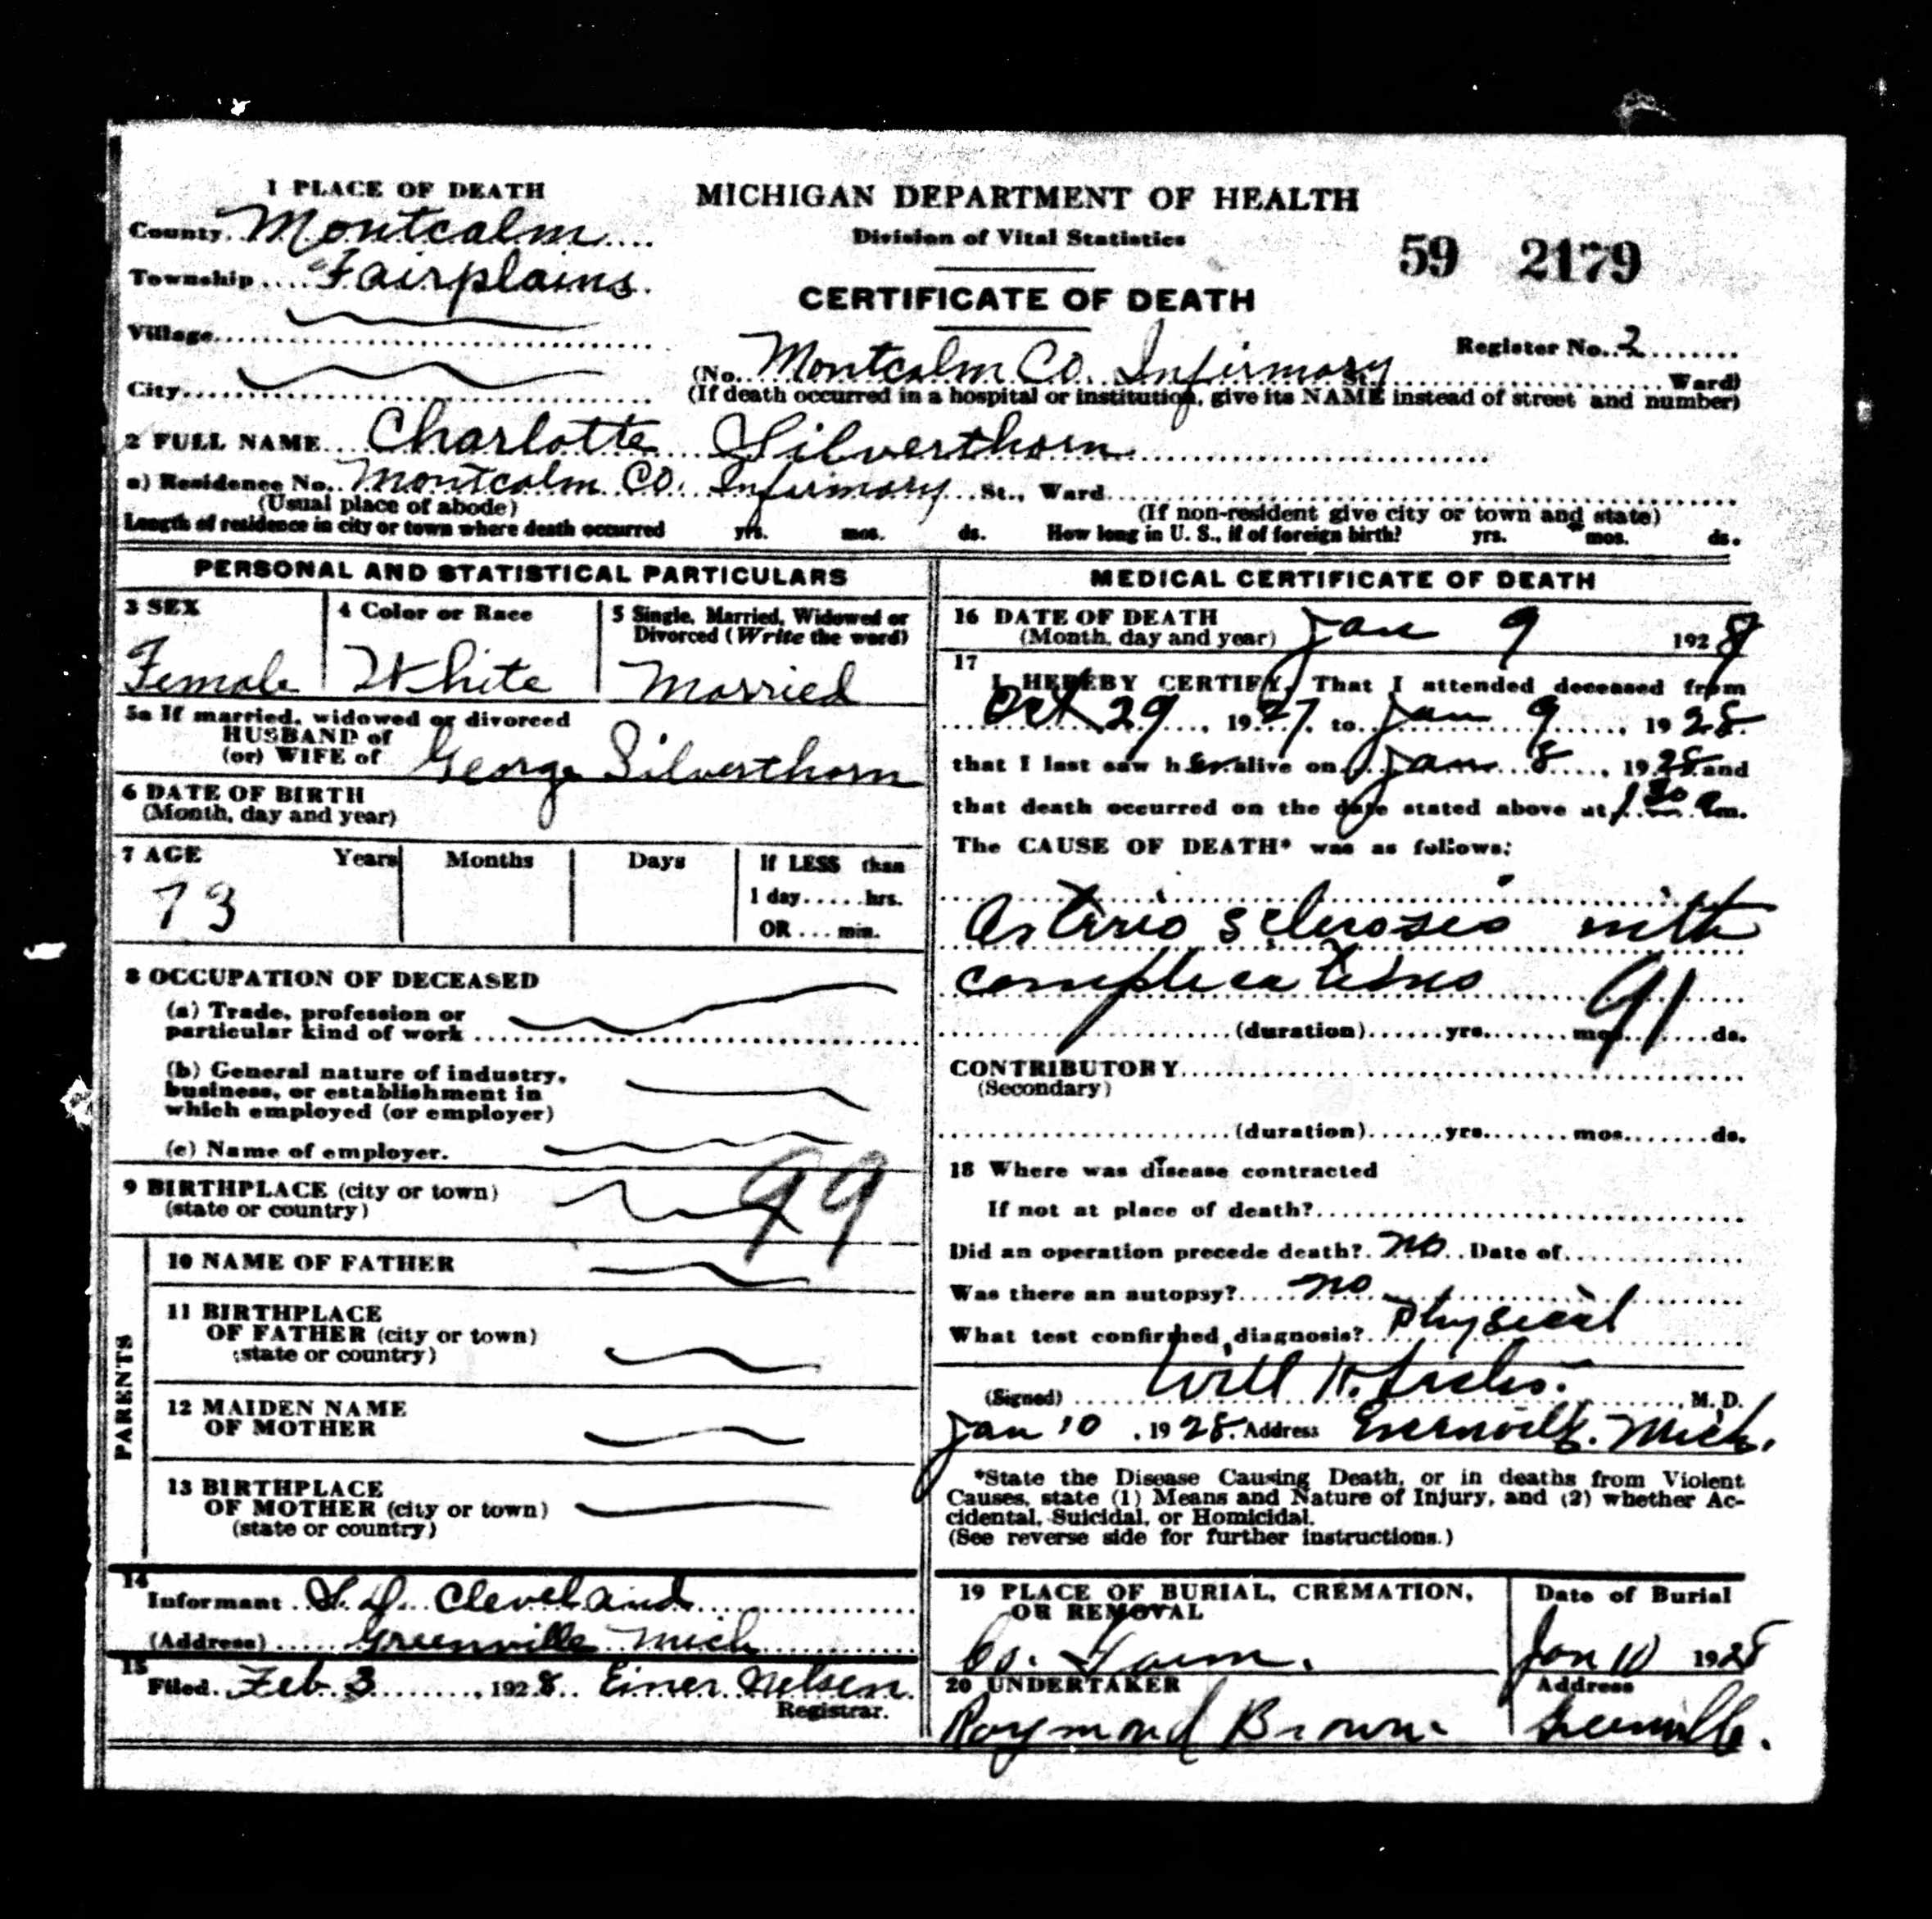 1 PLACE OF DEATH
County Montcalm
Township Fairplains
Village
City
MICHIGAN DEPARTMENT OF HEALTH
Division of Vital Statistics
59 2179
CERTIFICATE OF DEATH
Register No. 2
(No. Montcalm Co. Infirmary St. Ward)
(If death occurred in a hospital or institution, give its NAME instead of street and number)
2 FULL NAME Charlotte Silverthorn
a) Residence No. Montcalm Co. Infirmary St., Ward
(Usual place of abode) (If non-resident give city or town and state)
Length of residence in city or town where death occurred yrs. mos. ds. How long in U. S., if of foreign birth? yrs. mos. ds.
PERSONAL AND STATISTICAL PARTICULARS
3 SEX
Female
4 Color or Race
White
5 Single, Married, Widowed or
Divorced (Write the word)
Married
5a If married, widowed or divorced
HUSBAND of
(or) WIFE of George Silverthorn
6 DATE OF BIRTH
(Month, day and year)
7 AGE Years Months Days If LESS than
1 day......hrs.
OR....min.
73
8 OCCUPATION OF DECEASED
(a) Trade, profession or
particular kind of work
(b) General nature of industry,
business, or establishment in
which employed (or employer)
(c) Name of employer.
9 BIRTHPLACE (city or town)
(state or country)
99
PARENTS
10 NAME OF FATHER
11 BIRTHPLACE
OF FATHER (city or town)
(state or country)
12 MAIDEN NAME
OF MOTHER
13 BIRTHPLACE
OF MOTHER (city or town)
(state or country)
14
Informant Cleveland
(Address) Greenville Mich
15
Filed Feb 3, 1928 Einer Nelsen
Registrar.
MEDICAL CERTIFICATE OF DEATH
16 DATE OF DEATH
(Month, day and year) Jan 9 1928
17
I HEREBY CERTIFY, That I attended deceased from
Oct 29, 1927, to Jan 9, 1928.
that I last saw her alive on Jan 8, 1928 and
that death occurred on the date stated above at 1 30 a m.
The CAUSE OF DEATH* was as follows:
Arterio sclerosis with
complications 91
(duration) yrs. mos. ds.
CONTRIBUTORY
(Secondary)
(duration) yrs. mos. ds.
18 Where was disease contracted
If not at place of death?
Did an operation precede death? no Date of
Was there an autopsy? no
What test confirmed diagnosis? Physical
(Signed) Will H. , M. D.
Jan 10, 1928. Address Greenville. Mich.
*State the Disease Causing Death, or in deaths from Violent
Causes, state (1) Means and Nature of Injury, and (2) whether Ac-
cidental, Suicidal, or Homicidal.
(See reverse side for further instructions.)
19 PLACE OF BURIAL, CREMATION,
OR REMOVAL
Co. Farm.
Date of Burial
Jan 10 1928
20 UNDERTAKER
Raymond Brown.
Address
Greenville.